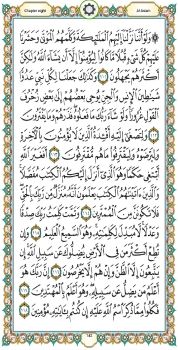 Chapter eight Al-Anam
وَلَوْ أَنَّنَا نَزَّلْنَآ إِلَيْهِمُ ٱلْمَلَٰٓئِكَةَ وَكَلَّمَهُمُ ٱلْمَوْتَىٰ وَحَشَرْنَا
عَلَيْهِمْ كُلَّ شَىْءٍ قُبُلًا مَّا كَانُوا۟ لِيُؤْمِنُوٓا۟ إِلَّآ أَن يَشَآءَ ٱللَّهُ وَلَٰكِنَّ
أَكْثَرَهُمْ يَجْهَلُونَ ١١١ وَكَذَٰلِكَ جَعَلْنَا لِكُلِّ نَبِىٍّ عَدُوًّا
شَيَٰطِينَ ٱلْإِنسِ وَٱلْجِنِّ يُوحِى بَعْضُهُمْ إِلَىٰ بَعْضٍ زُخْرُفَ
ٱلْقَوْلِ غُرُورًا وَلَوْ شَآءَ رَبُّكَ مَا فَعَلُوهُ فَذَرْهُمْ وَمَا يَفْتَرُونَ
١١٢ وَلِتَصْغَىٰٓ إِلَيْهِ أَفْـِٔدَةُ ٱلَّذِينَ لَا يُؤْمِنُونَ بِٱلْءَاخِرَةِ
وَلِيَرْضَوْهُ وَلِيَقْتَرِفُوا۟ مَا هُم مُّقْتَرِفُونَ ١١٣ أَفَغَيْرَ ٱللَّهِ
أَبْتَغِى حَكَمًا وَهُوَ ٱلَّذِىٓ أَنزَلَ إِلَيْكُمُ ٱلْكِتَٰبَ مُفَصَّلًا
وَٱلَّذِينَ ءَاتَيْنَٰهُمُ ٱلْكِتَٰبَ يَعْلَمُونَ أَنَّهُۥ مُنَزَّلٌ مِّن رَّبِّكَ بِٱلْحَقِّ
فَلَا تَكُونَنَّ مِنَ ٱلْمُمْتَرِينَ ١١٤ وَتَمَّتْ كَلِمَتُ رَبِّكَ صِدْقًا
وَعَدْلًا لَّا مُبَدِّلَ لِكَلِمَٰتِهِۦ وَهُوَ ٱلسَّمِيعُ ٱلْعَلِيمُ ١١٥ وَإِن
تُطِعْ أَكْثَرَ مَن فِى ٱلْأَرْضِ يُضِلُّوكَ عَن سَبِيلِ ٱللَّهِ إِن
يَتَّبِعُونَ إِلَّا ٱلظَّنَّ وَإِنْ هُمْ إِلَّا يَخْرُصُونَ ١١٦ إِنَّ رَبَّكَ هُوَ
أَعْلَمُ مَن يَضِلُّ عَن سَبِيلِهِۦ وَهُوَ أَعْلَمُ بِٱلْمُهْتَدِينَ ١١٧
فَكُلُوا۟ مِمَّا ذُكِرَ ٱسْمُ ٱللَّهِ عَلَيْهِ إِن كُنتُم بِـَٔايَٰتِهِۦ مُؤْمِنِينَ ١١٨